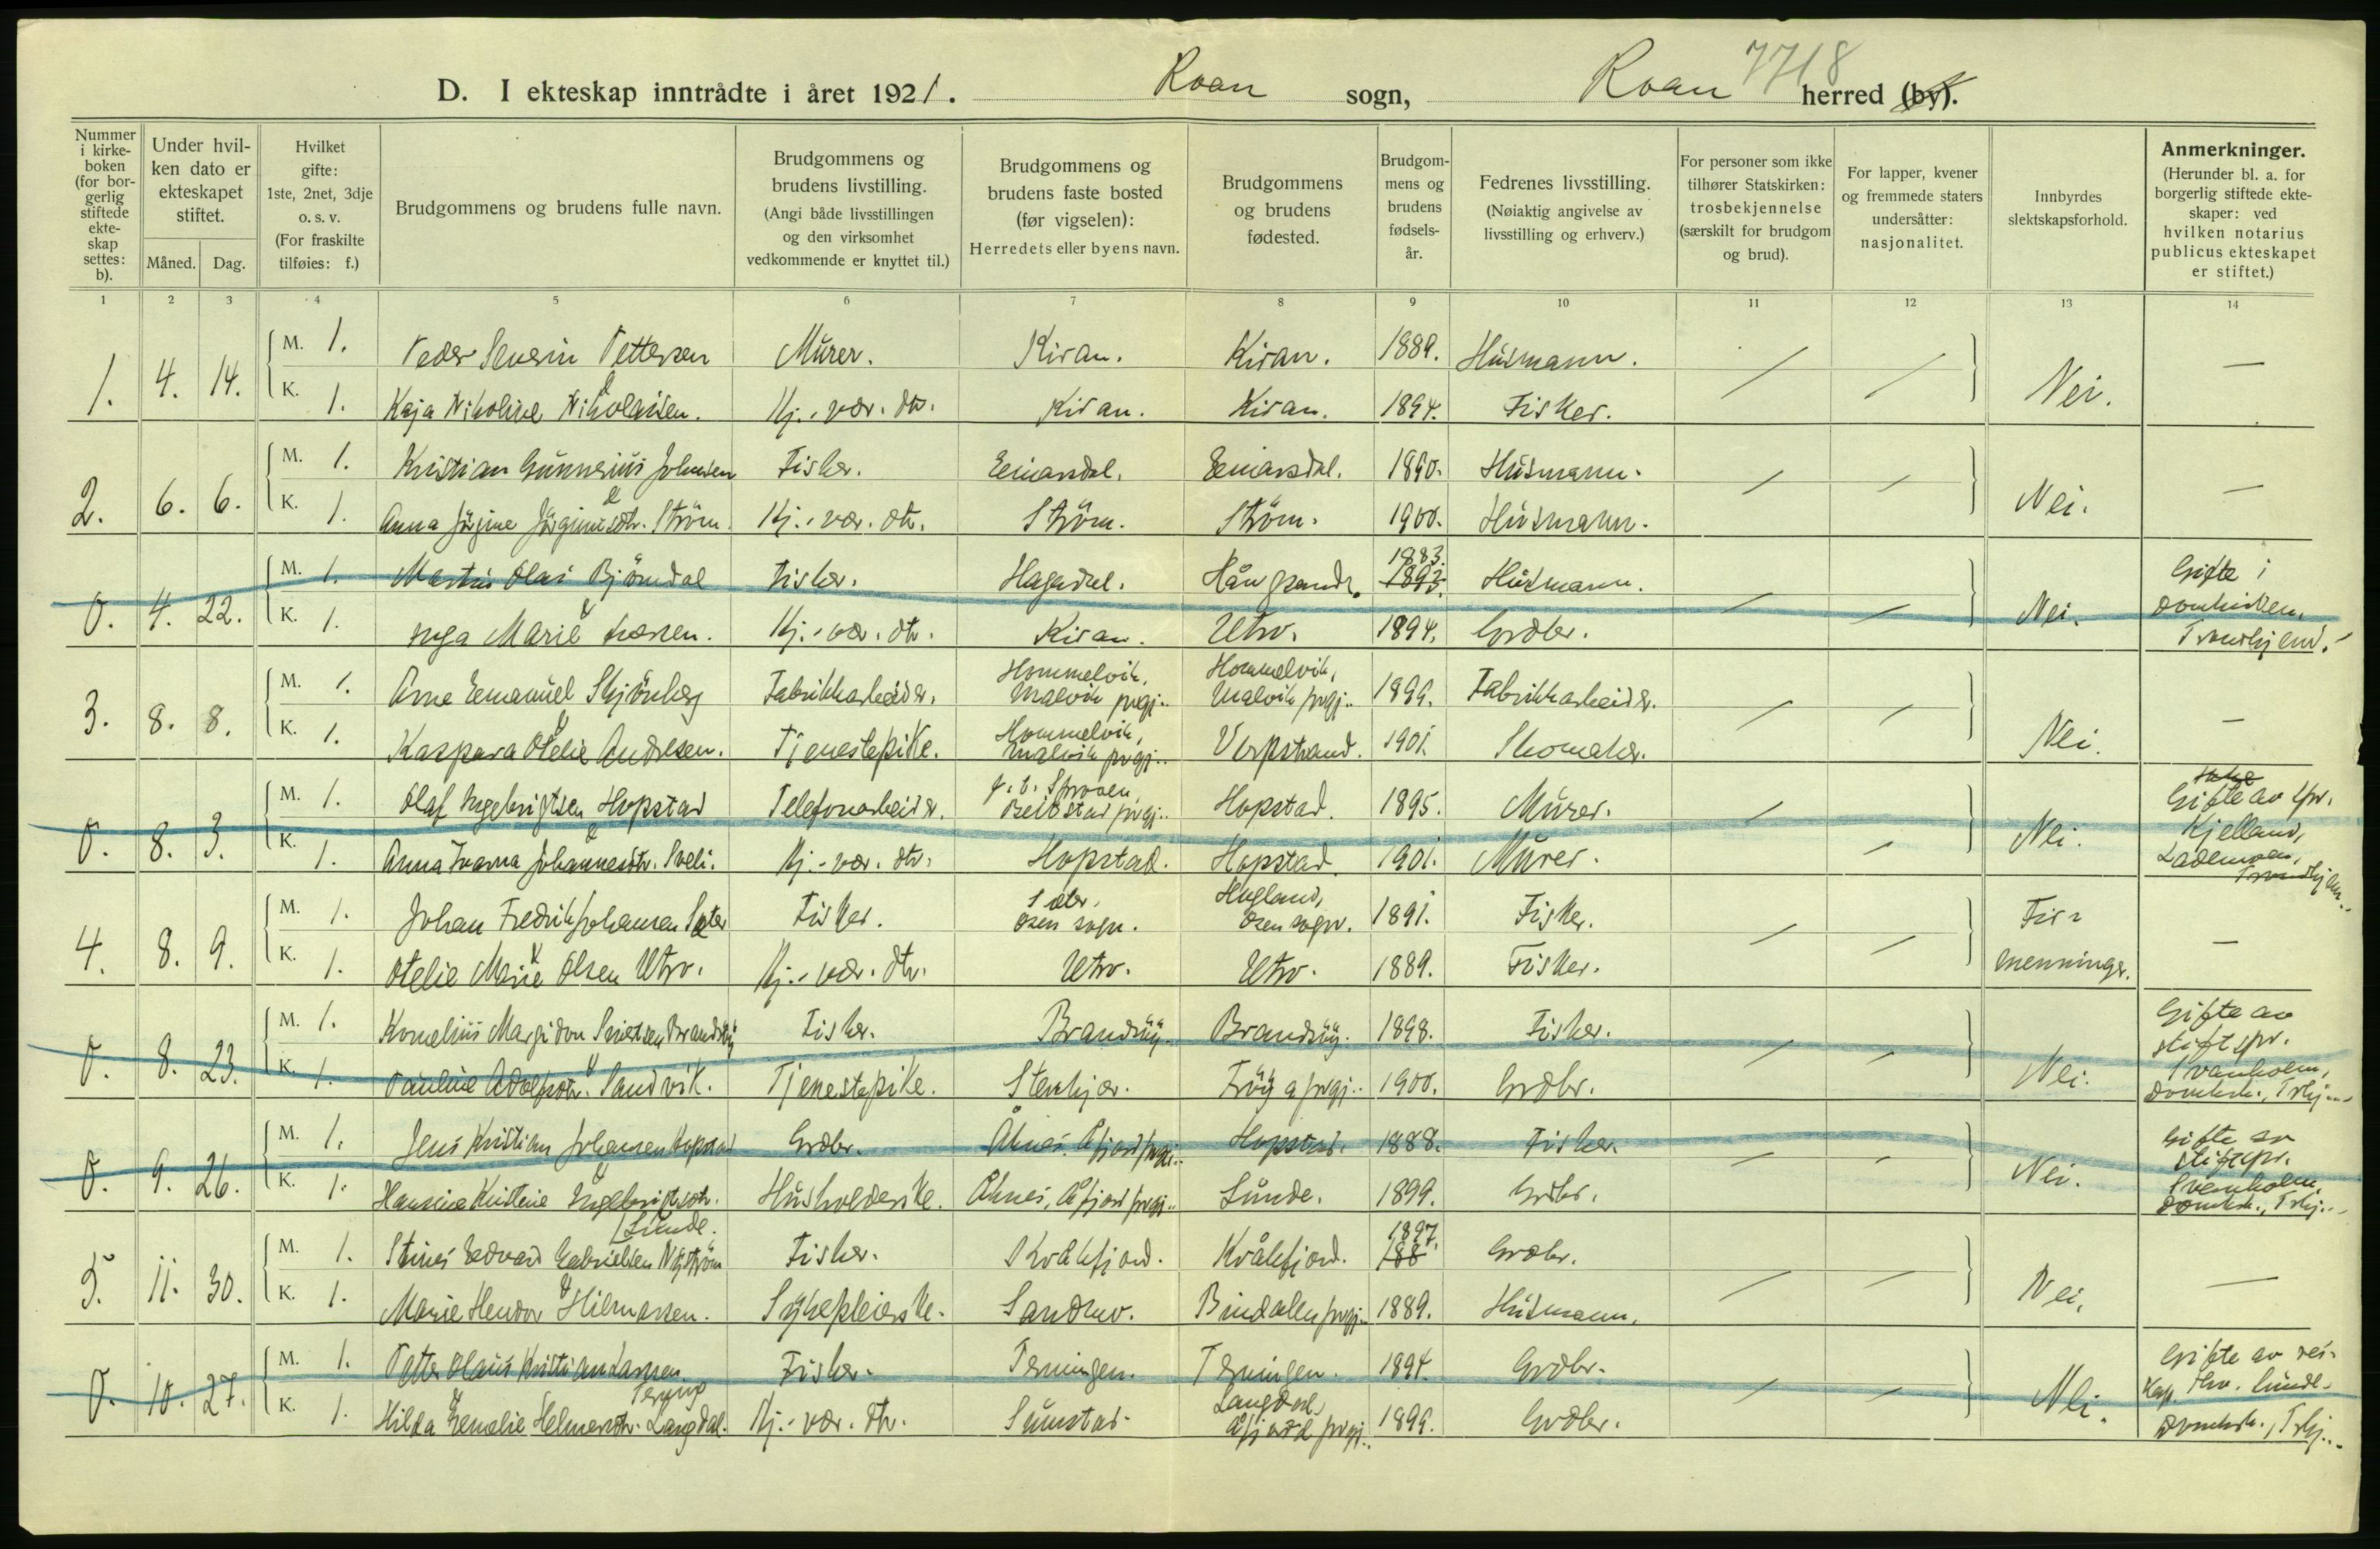 D. I ekteskap inntrådte i året 1921. Roan sogn, Roan 7718 herred (by).
Nummer i kirke-boken (for bor-gerlig stiftede ekte-skap settes: b).
Under hvil-ken dato er ekteskapet stiftet.
Måned. Dag.
Hvilket gifte: 1ste, 2net, 3dje o. s. v. (For fraskilte tilføies: f.)
Brudgommens og brudens fulle navn.
Brudgommens og brudens livstilling. (Angi både livsstillingen og den virksomhet vedkommende er knyttet til.)
Brudgommens og brudens faste bosted (før vigselen): Herredets eller byens navn.
Brudgommens og brudens fødested.
Brudgom-mens og brudens fødsels-år.
Fedrenes livsstilling. (Nøiaktig angivelse av livsstilling og erhverv.)
For personer som ikke tilhører Statskirken: trosbekjennelse (særskilt for brudgom og brud).
For lapper, kvener og fremmede staters undersåtter: nasjonalitet.
Innbyrdes slektskapsforhold.
Anmerkninger. (Herunder bl. a. for borgerlig stiftede ekte-skaper: ved hvilken notarius publicus ekteskapet er stiftet.)
1 2 3 4 5 6 7 8 9 10 11 12 13 14
M. 1. Peder Severin Pettersen Murer. Kiran. Kiran. 1889. Husmann.
1. 4. 14. Nei. —
K. 1. Kaja Nikoline Nikolaisen. Hj.-vær. dtr. Kiran. Kiran. 1894. Fisker.
M. 1. Kristian Gunnerius Johnsen Fisker. Einarsdal. Einarsdal. 1890. Husmann.
2. 6. 6. Nei. —
K. 1. Anna Jørgine Jørginusdtr. Strøm. Hj.-vær. dtr. Strøm. Strøm. 1900. Husmann.
M. 1. Martin Olai Bjørndal Fisker. Hagadal. 1883. 1893. Husmann. Gifte i
0. 4. 22. Nei. Domkirken,
K. 1. Inga Marie Larsen. Hj.-vær. dtr. Kiran. Utro. 1894. Grdbr. Trondhjem.
M. 1. Arne Emanuel Skjønberg Fabrikkarbeider. Hommelvik, Malvik prgj. Hommelvik, Malvik prgj. 1899. Fabrikkarbeider.
3. 8. 8. Nei. —
K. 1. Kaspara Otelie Andresen. Tjenestepike. Hommelvik, Malvik prgj. Verpstrand. 1901. Skomaker.
M. 1. Olaf Ingebrigtsen Hopstad Telefonarbeider. Beitstad prgj. Hopstad. 1895. Murer. Gifte av spr.
0. 8. 3. Nei. Kjelland,
K. 1. Anna Ivarna Johannesdtr. Sveli. Hj.-vær. dtr. Hopstad. Hopstad. 1901. Murer. Lademoen, Trondhjem.
M. 1. Johan Fredrik Johansen Sæter Fisker. Sæter, Osen sogn. Hugland, Osen sogn. 1891. Fisker. Tre-
4. 8. 9. —
K. 1. Otelie Marie Olsen Utro. Hj.-vær. dtr. Utro. Utro. 1889. Fisker. menninger.
M. 1. Kornelius Margidon Brandsøy Fisker. Brandsøy. Brandsøy. 1898. Fisker. Gifte av stiftspr.
0. 8. 23. Nei.
K. 1. Pauline Adolfsdtr. Sandvik. Tjenestepike. Stenkjær. Frøya prgj. 1900. Grdbr. Svanholm, Domkrk., Trhj.
M. 1. Jens Kristian Johansen Hopstad Grdbr. Åknes, Åfjord prgj. Hopstad. 1888. Fisker. Gifte av stiftspr.
0. 9. 26. Nei.
K. 1. Hansine Kristine Ingebrigtsdtr. Lunde. Husholderske. Åknes, Åfjord prgj. Lunde. 1899. Grdbr. Svenholm, Domkrk., Trhj.
M. 1. Edvard Gabrielsen Nystrøm Fisker. Kvalfjord. Kvålfjord. 1897. 188 Grdbr.
5. 11. 30. Nei. —
K. 1. Marie Hendor Hilmarsen. Sykepleierske. Sandmo. Bindalen prgj. 1889. Husmann.
M. 1. Petter Olaus Kristian Larsen Terning Fisker. Terningen. Terningen. 1894. Grdbr. Gifte av res.
0. 10. 27. Nei. Kap. Thv. Lunde.
K. 1. Hilda Emelie Helmersdtr. Langdal. Hj.-vær. dtr. Sumstad. Langdal, Åfjord prgj. 1899. Grdbr. Domkrk., Trhj.